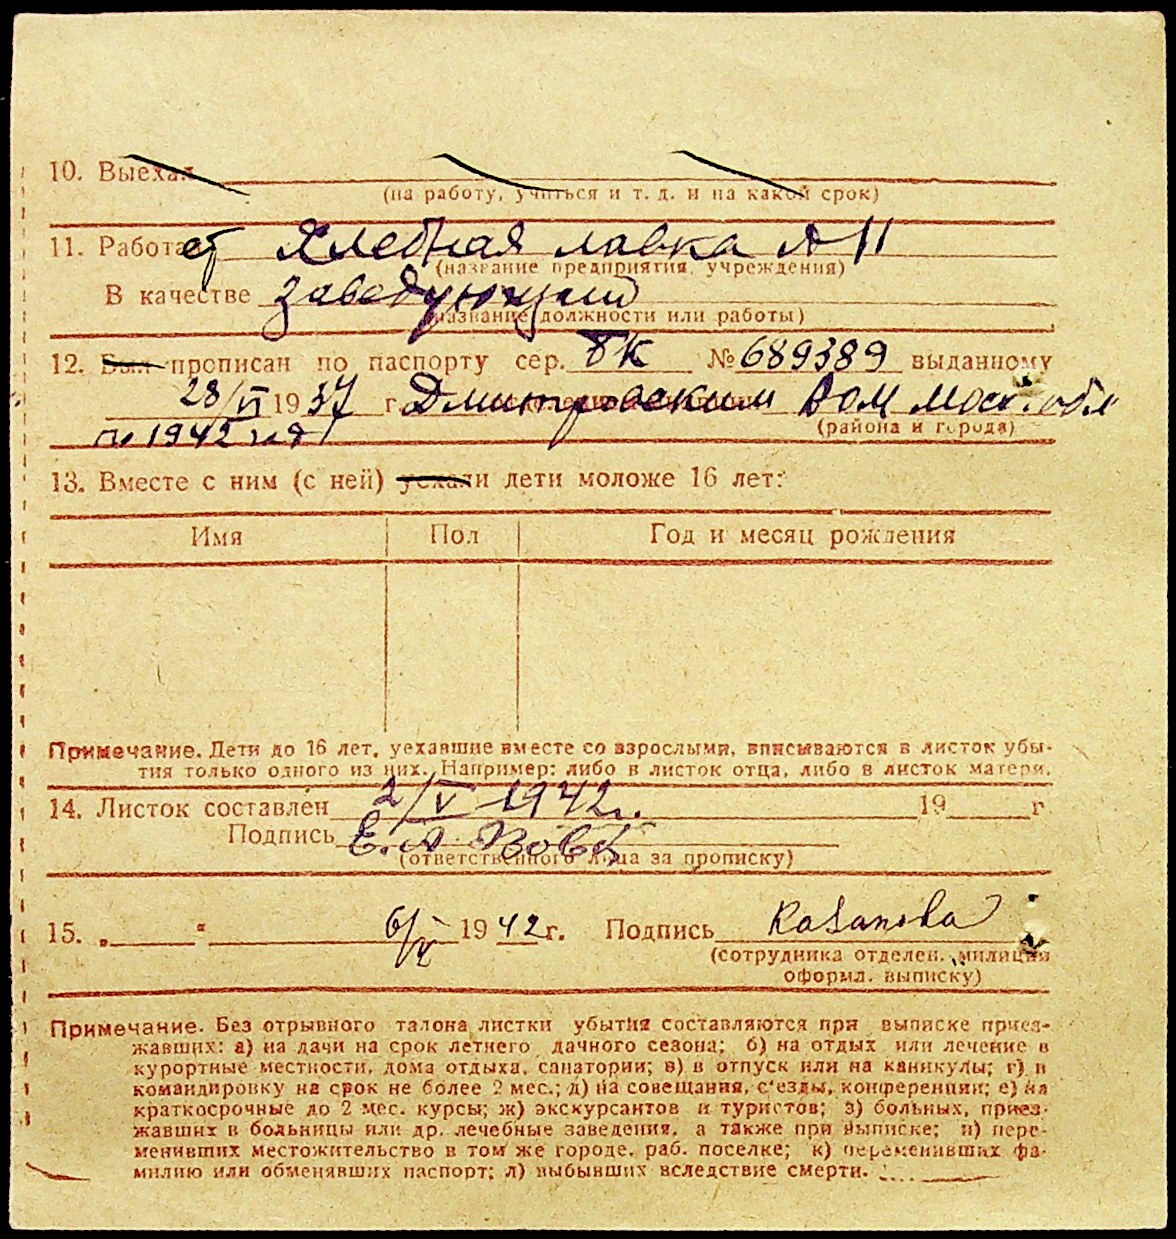 10. Выехал
(на работу, учиться и т. д. и на какой срок)
11. Работает Хлебная лавка № 11
(название предприятия, учреждения)
В качестве заведующий
(название должности или работы)
12. Был прописан по паспорту сер. № 689389 выданному
28/VI 1937 г. Дмитровским Моск. обл
(района и города)
по 1942
13. Вместе с ним (с ней) уехали дети моложе 16 лет:
Имя Пол Год и месяц рождения
Примечание. Дети до 16 лет, уехавшие вместе со взрослыми, вписываются в листок убы-
тия только одного из них. Например: либо в листок отца, либо в листок матери.
14. Листок составлен 2/V 1942г. 19 г
Подпись Е. А.
(ответственного лица за прописку)
15. „ “ 6/V 1942г. Подпись
(сотрудника отделен. милиции
оформл. выписку)
Примечание. Без отрывного талона листки убытия составляются при выписке приез-
жавших: а) на дачи на срок летнего дачного сезона; б) на отдых или лечение в
курортные местности, дома отдыха, санатории; в) в отпуск или на каникулы; г) в
командировку на срок не более 2 мес.; д) на совещания, с'езды, конференции; е) на
краткосрочные до 2 мес. курсы; ж) экскурсантов и туристов; з) больных, приез-
жавших в больницы или др. лечебные заведения, а также при выписке; и) пере-
менивших местожительство в том же городе, раб. поселке; к) переменивших фа-
милию или обменявших паспорт; л) выбывших вследствие смерти.